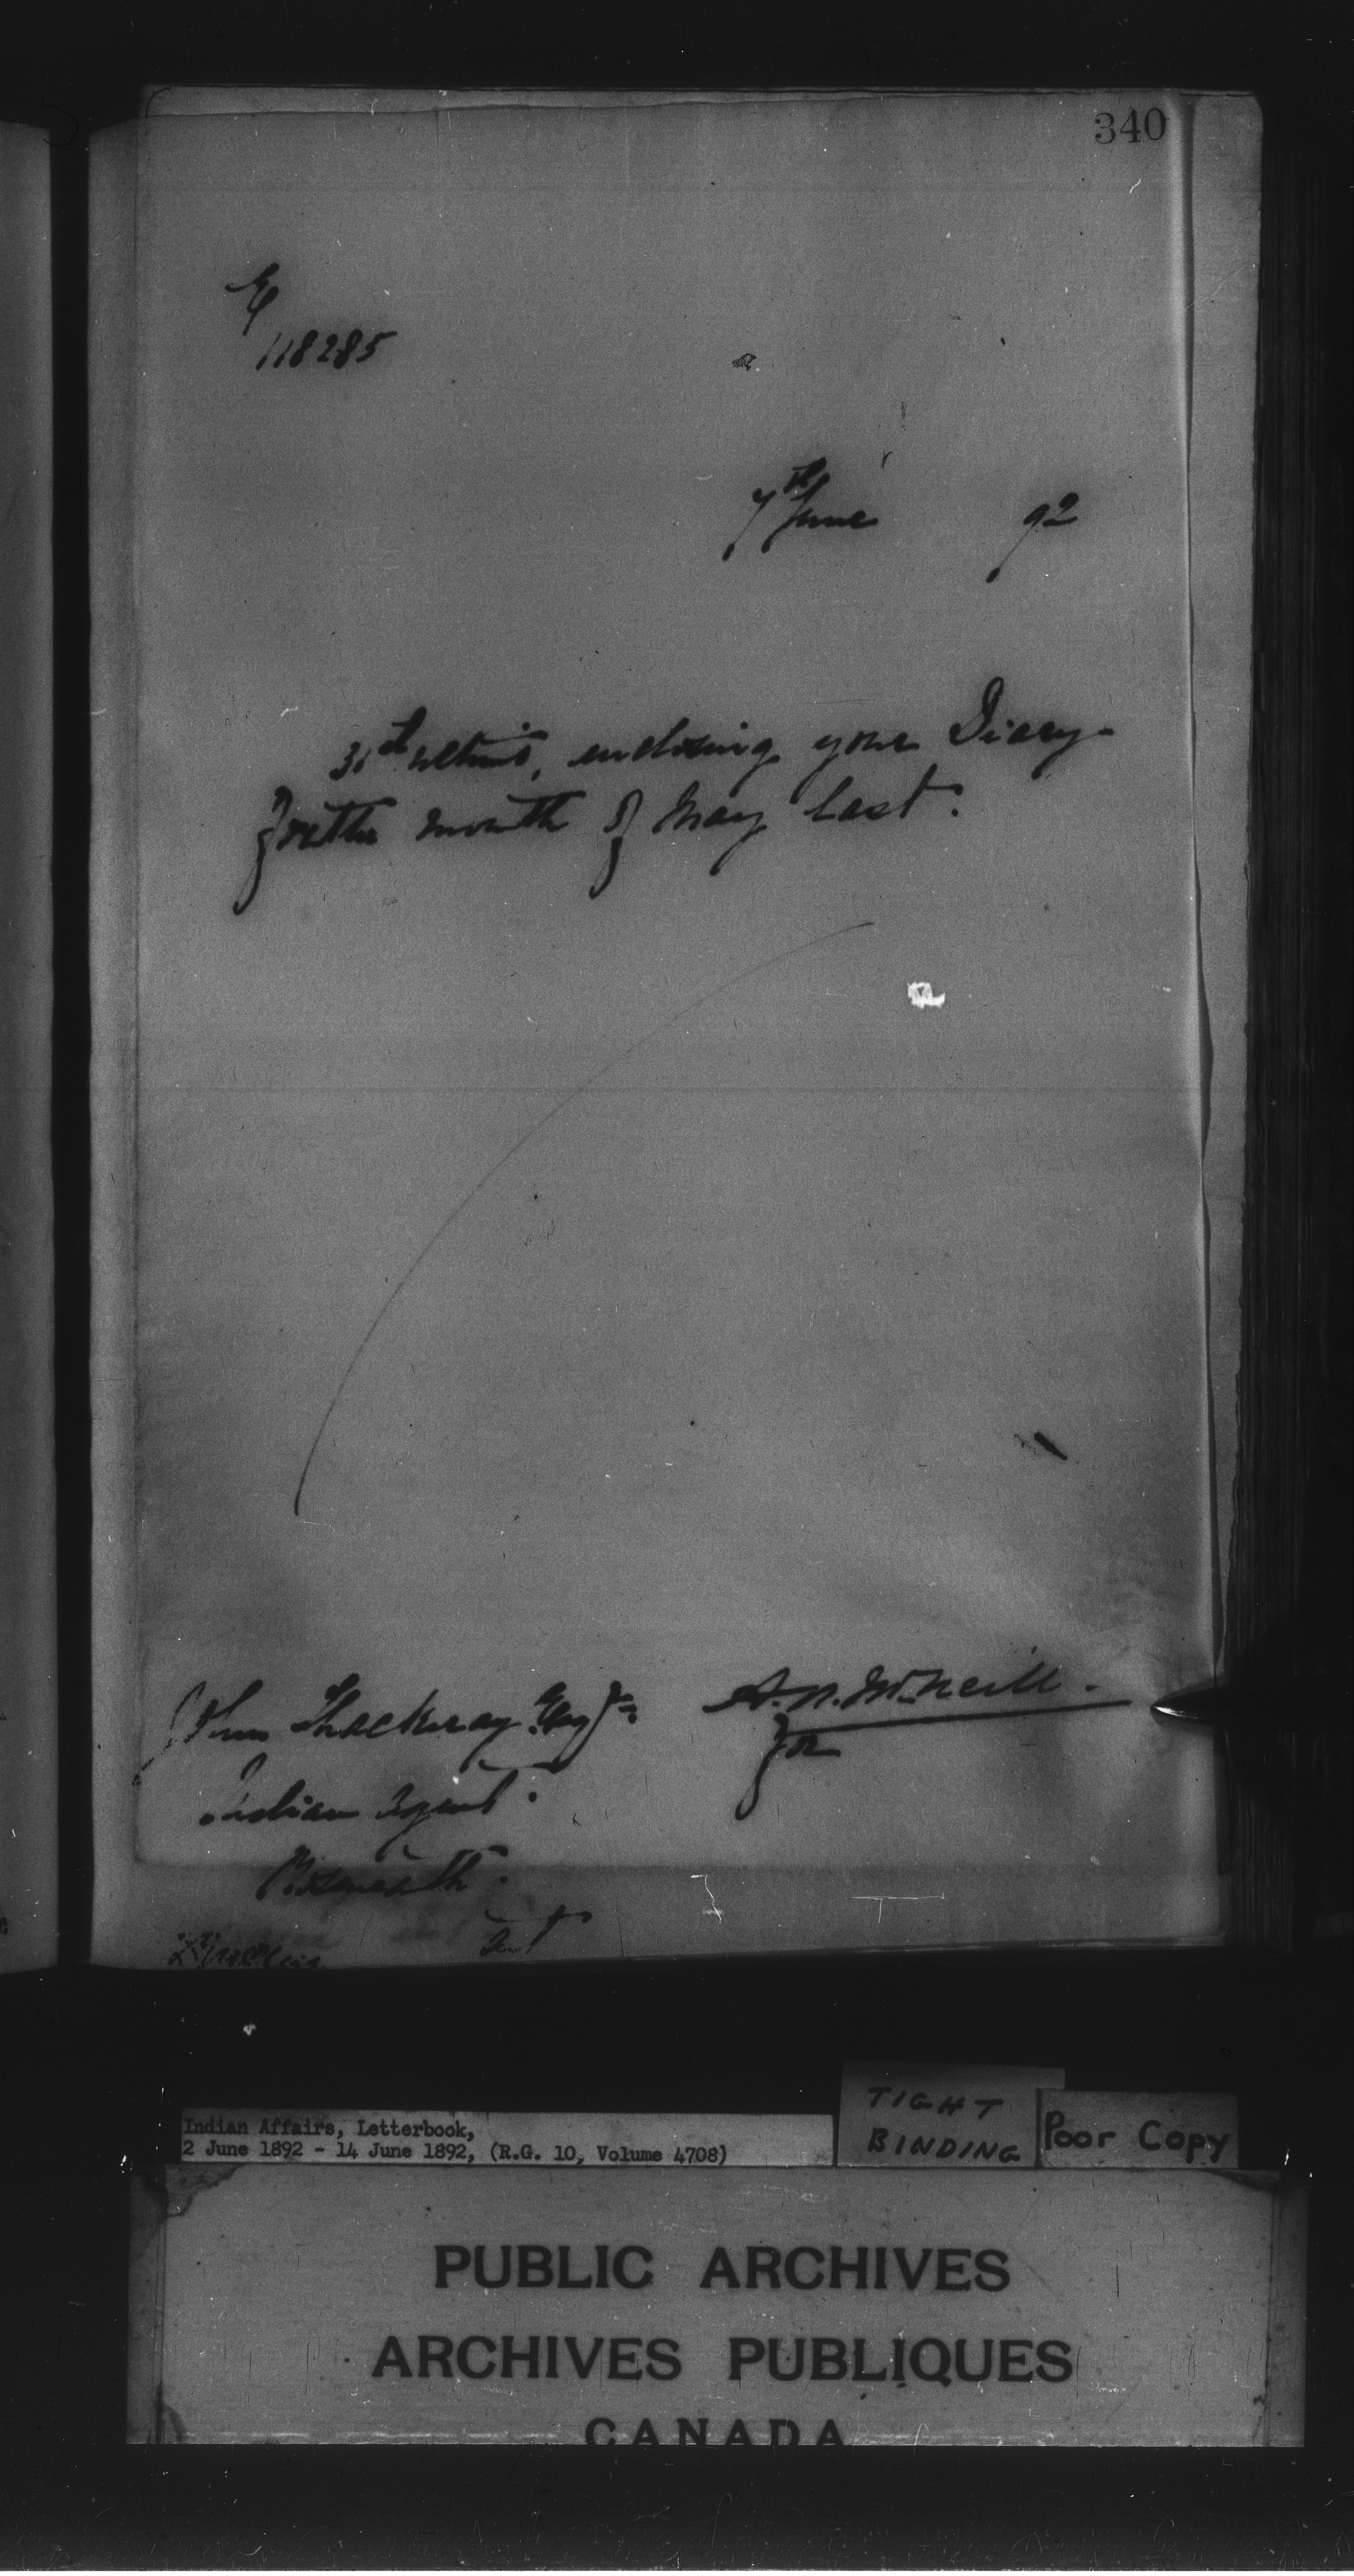 340
118285
7th June 92
31st ultimo, enclosing your Diary
for the month of May last.
John Thackeray Esqre
A. N. McNeill.
for
Indian Agent.
Roseneath.
Ont
Indian Affairs, Letterbook,
2 June 1892 - 14 June 1892, (R.G. 10, Volume 4708)
TIGHT
BINDING
Poor Copy
PUBLIC ARCHIVES
ARCHIVES PUBLIQUES
CANADA